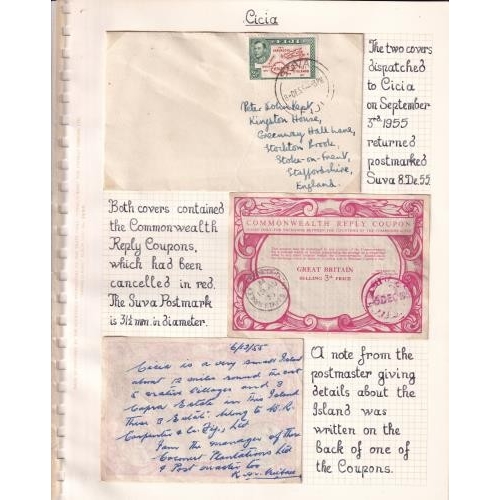 Cicia
FIJI
The two covers
dispatched
to Cicia
on September
3rd. 1955
returned
postmarked
Suva 8.De.55.
Kingston House,
Greenway Hall Lane,
Stockton Brook,
Stoke-on-Trent,
Staffordshire,
England.
Both covers contained
the Commonwealth
Reply Coupons,
which had been
cancelled in red.
The Suva Postmark
is 31½ mm. in diameter.
COMMONWEALTH REPLY COUPON
GREAT BRITAIN
SELLING 3d PRICE
6/12/55
Cicia is a very small Island
about 12 miles round
5 native villages and 3
Copra Estate on this Island
These 3 Estate belong to W.R.
Carpenter & Co. Fiji, Ltd
I am the manager of those
Coconut Plantations Ltd
& Post master too
A note from the
postmaster giving
details about the
Island was
written on the
back of one of
the Coupons.